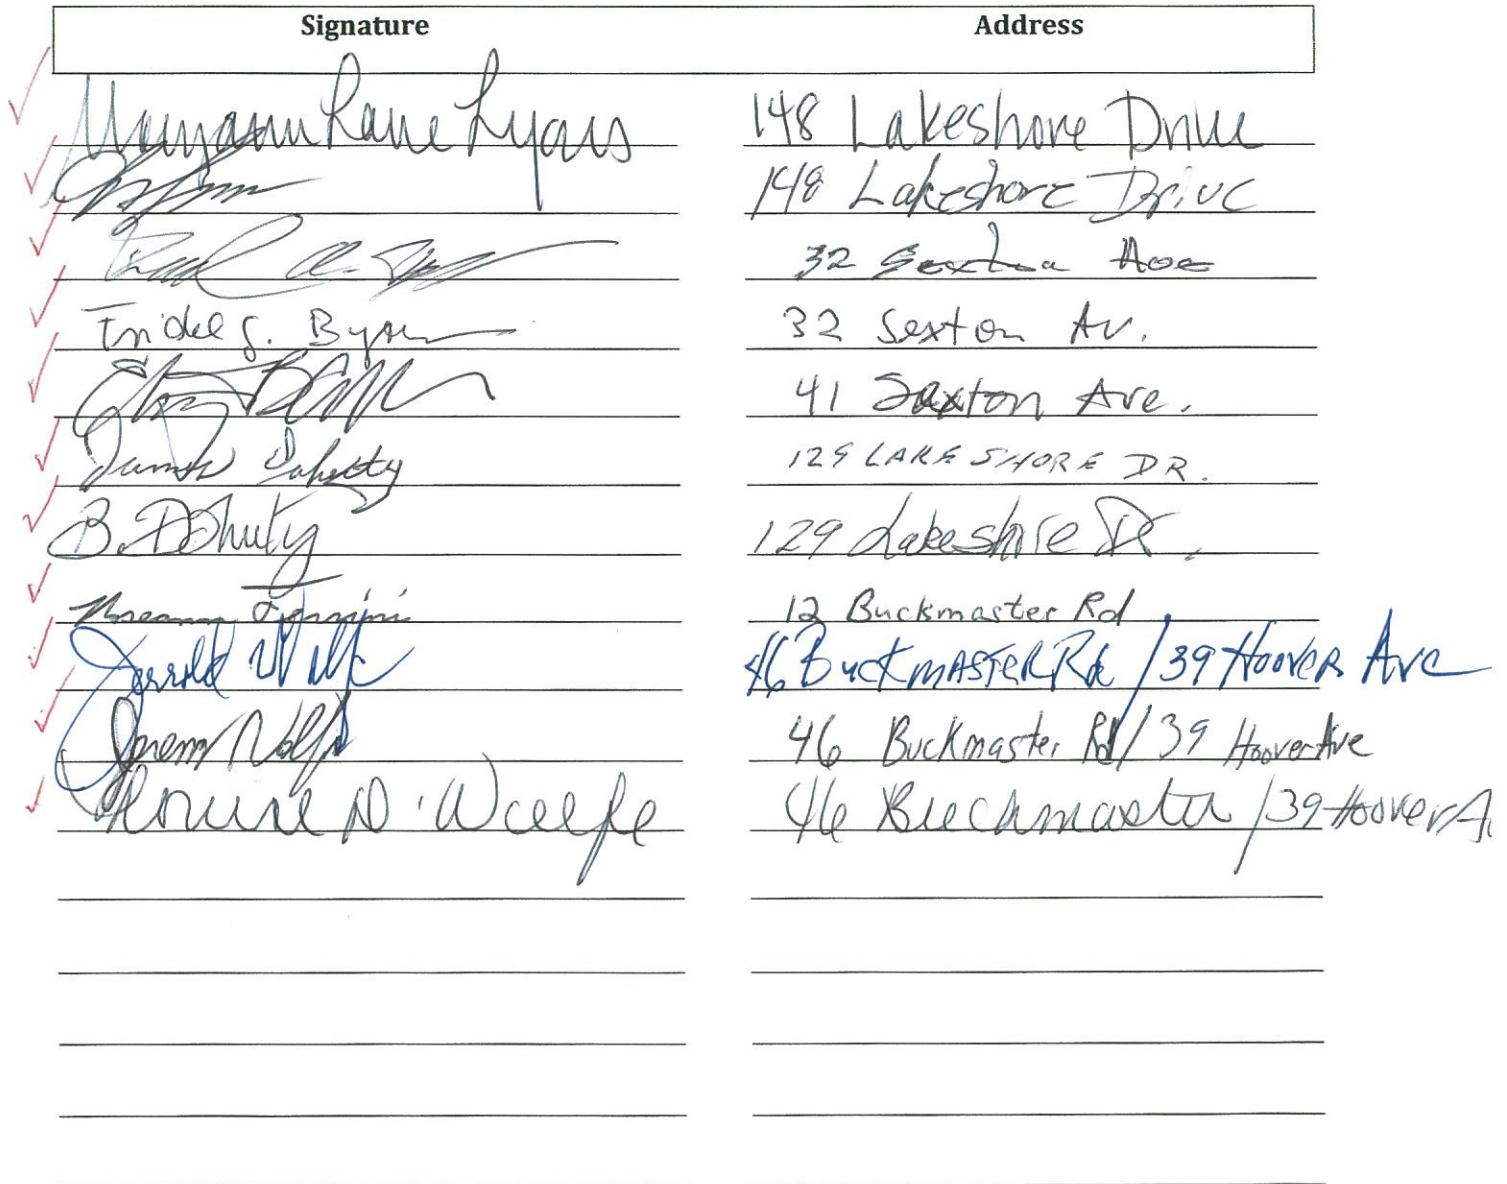 Signature Address
Maryann Lane Lyons 148 Lakeshore Drive
148 Lakeshore Drive
32 Ave
32 Sexton Av.
41 Saxton Ave.
James Doherty 129 LAKE SHORE DR.
B. Doherty 129 Lakeshore Dr.
12 Buckmaster Rd
Jerrold Wolfe 46 BuckmASTER Rd / 39 Hoover Ave
Wolfe 46 Buckmaster Rd / 39 Hoover Ave
Louise D. Wolfe 46 Buckmaster / 39 Hoover A